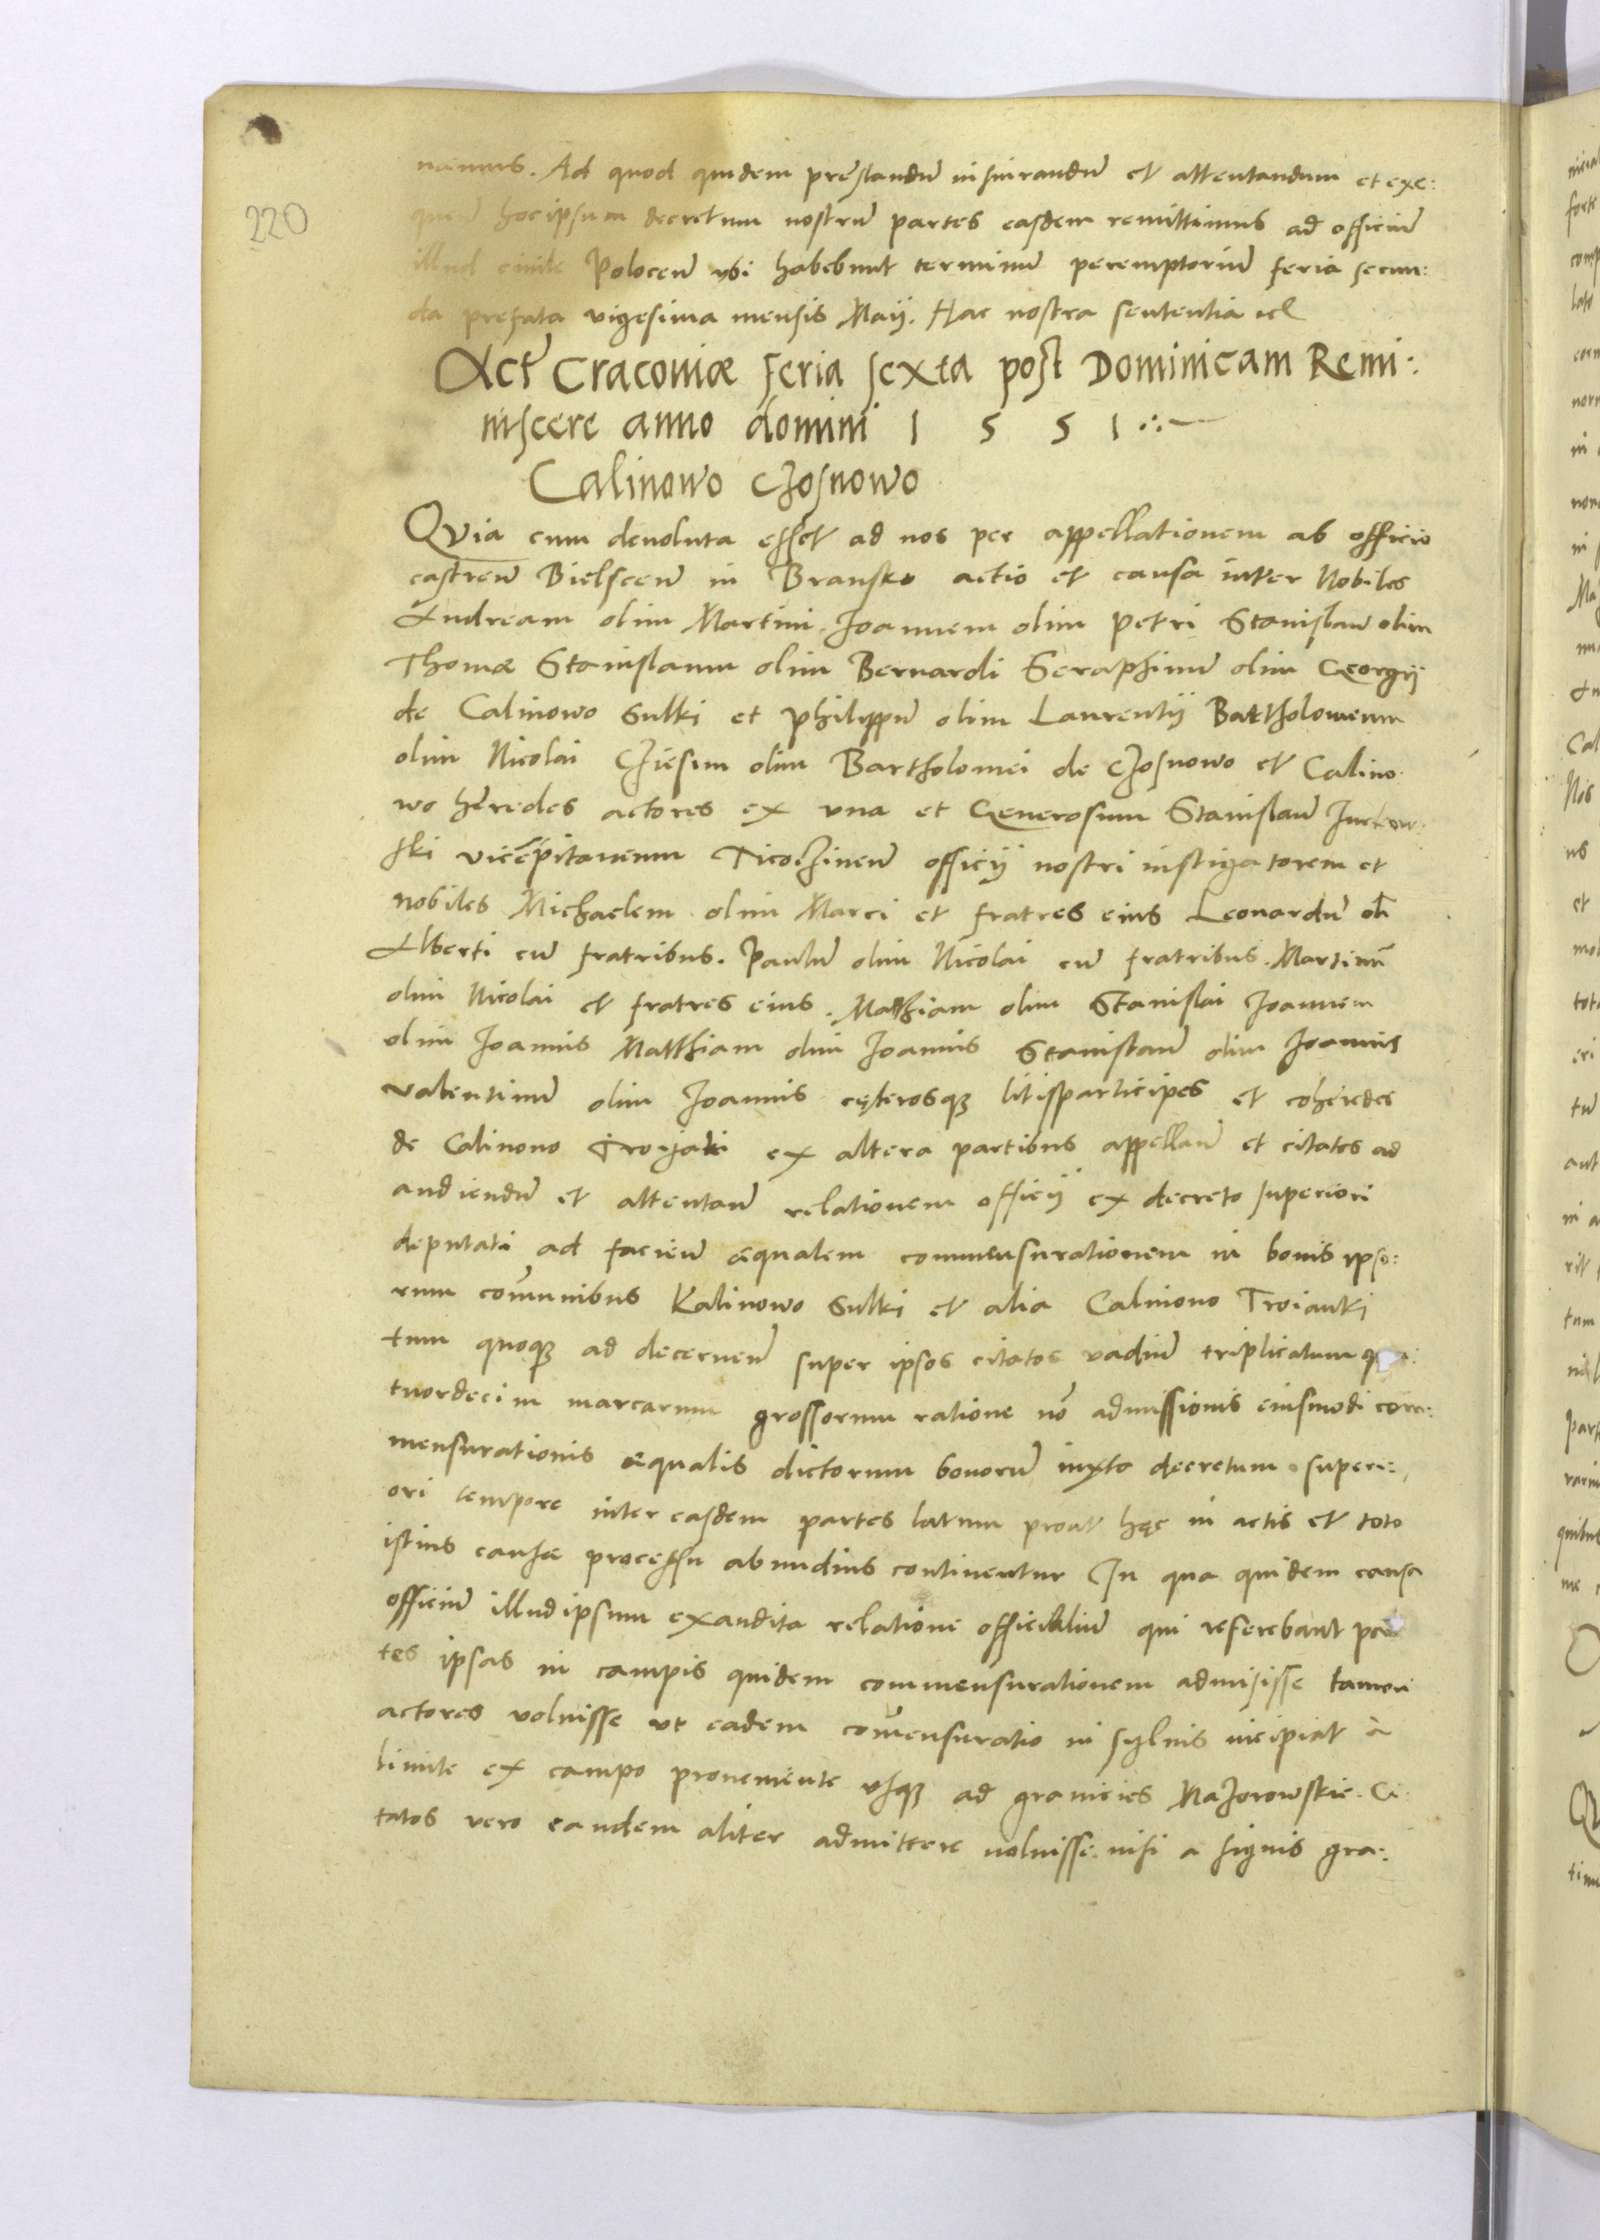 220
namus. Ad quod quidem prestandũ insinrandũ et attentandum et exe:
quenẽ hocipsum decretum nostrũ partes easdem remittimus ad officiũ
illud civile Polocenẽ ubi habebunt terminũ peremptoriũ feria secun:
da prefata vigesima mensis Maij. Hac nostra sententia etc
Actũ Cracoviæ feria sexta post Dominicam Remi:
niscere anno domini 1 5 5 1
Calinowo Czosnowo
Quia cum devoluta esset ad nos per appellationem ab officio
castrenẽ Bielscenẽ in Bransko actio et causa inter Nobiles
Andream olim Martini Joannem olim Petri Stanislaũ olim
Thomæ Stanislaum olim Bernardi Seraphinũ olim Georgij
de Calinowo Sulki et Philippũ olim Laurentij Bartholomeum
olim Nicolai olim Bartholomei de Czosnowo et Calino
wo heredes actores ex una et Generosum Stanislaũ
ski vicecapitaneum Ticozinenẽ officij nostri instigatorem et
nobiles Michaelem olim Marci et fratres eius Leonardũ olĩ
Alberti cũ fratribus. Paulũ olim Nicolai cũ fratribus. Martinũ
olim Nicolai et fratres eius. Mathiam olim Stanislai Joannem
olim Joannis Matthiam olim Joannis Stanislaũ olim Joannis
Valentinũ olim Joannis cęterosq; litisparticipes et coheredes
de Calinovo Troijaki ex altera partibus appellanẽ et citatos ad
audiendũ et attentanẽ relationem officij ex decreto superiori
deputati ad facienẽ æqualem commensurationem in bonis ipso:
rum cõmunibus Kalinowo Sulki et alia Calinovo Troianki
tum quoq; ad decernenẽ super ipsos citatos vadiũ triplicatum qua:
tuordecim marcarum grossorum ratione nõ admissionis eiusmodi com:
mensurationis æqualis dictorum bonorũ iuxta decretum superi:
ori tempore inter easdem partes latum prout hęc in actis et toto
istius causæ processu abundius continentur In qua quidem causa
officiũ illudipsum exaudita relatione officialiũ qui referebant par
tes ipsas in campis quidem commensurationem admisisse tamen
actores voluisse ut eadem cõmensuratio in sylvis incipiat à
limite ex campo proveniente usq; ad granicies Mazorowskie. Ci
tatos vero eandem aliter admittere noluisse nisi a signis gra: